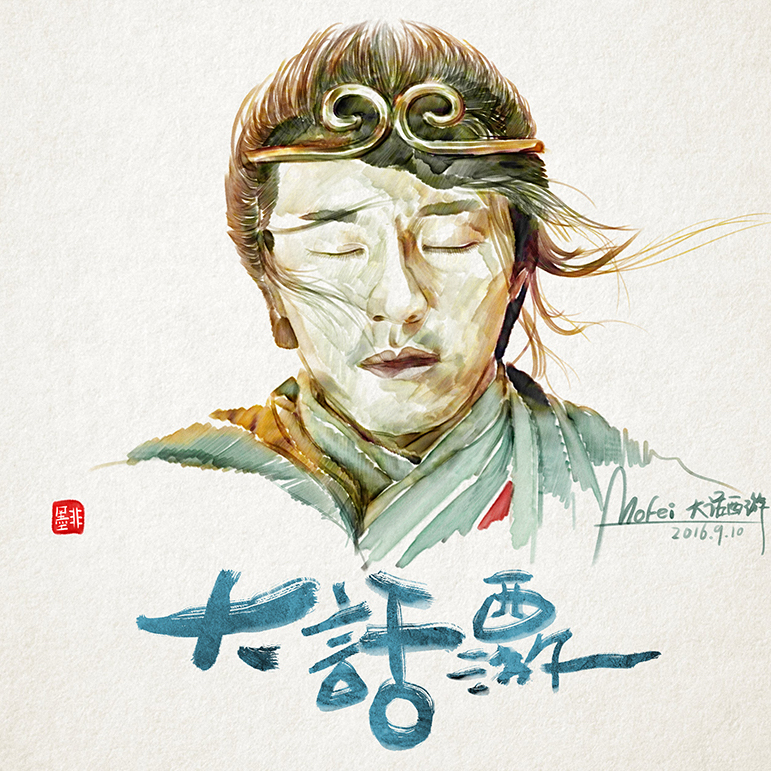 墨非
Mofei 大话西游
2016.9.10
大話西游